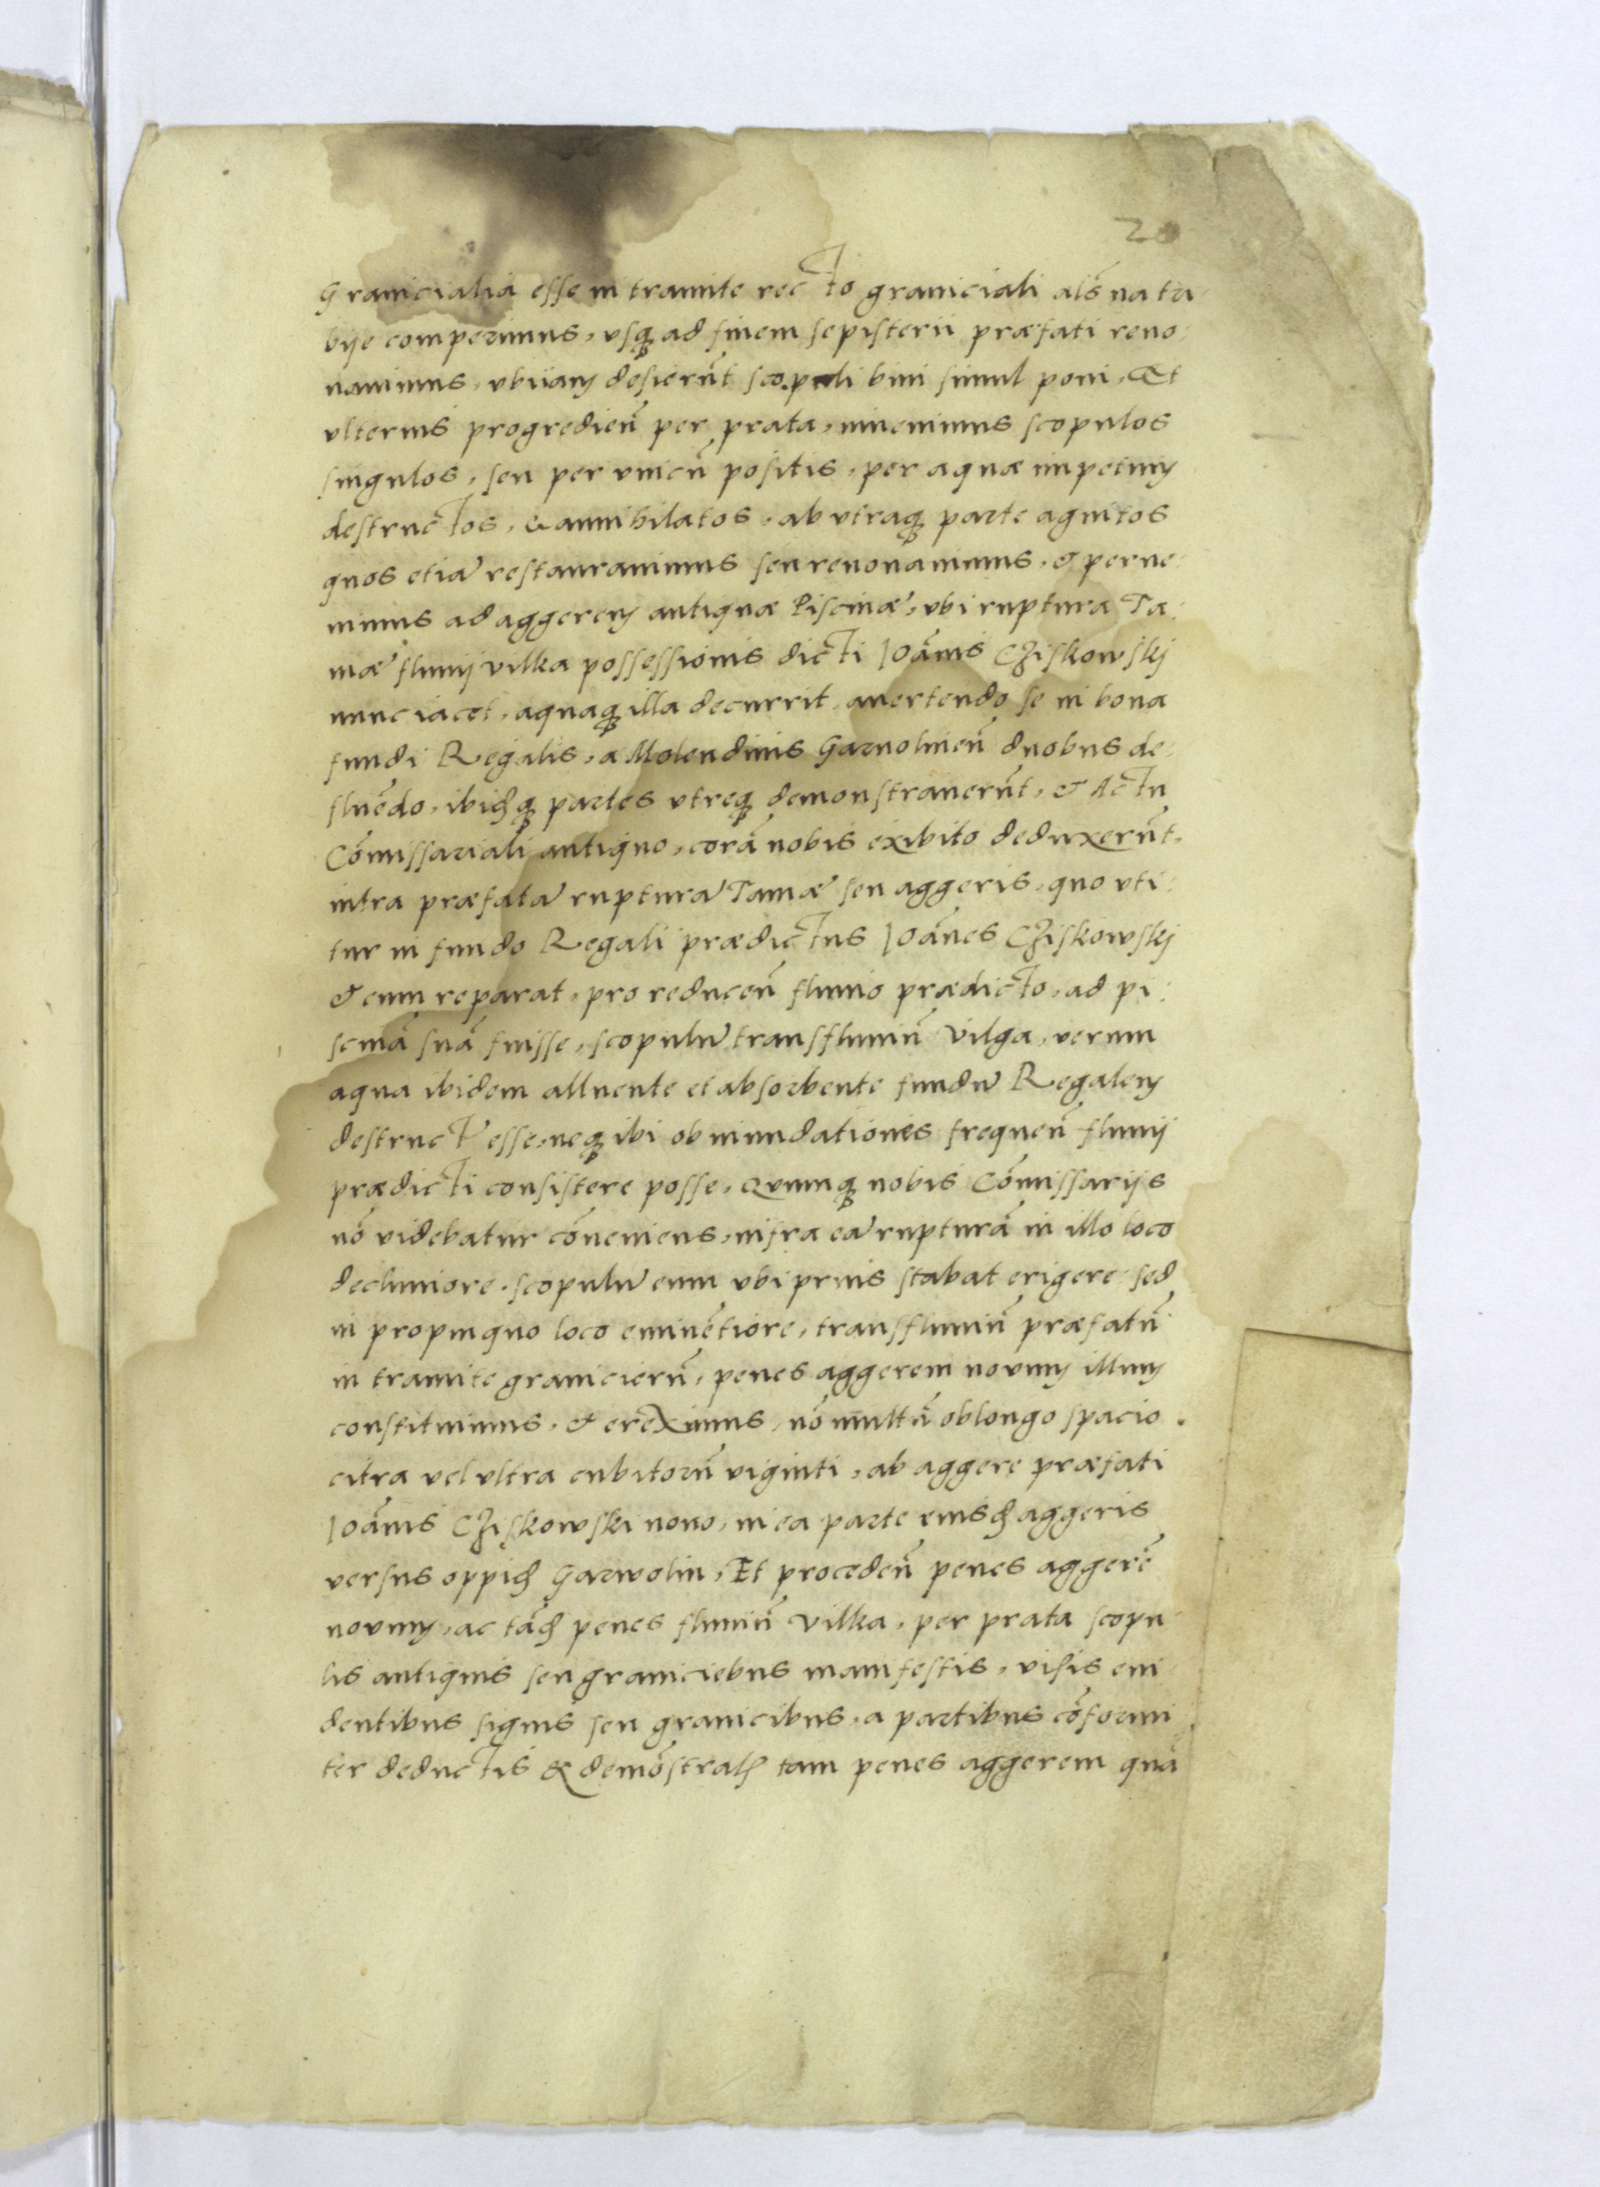 20
Granicialia esse in tramite recto graniciali als̃ na tu
bije comperimus, vsq̃ ad finem sepisterii præfati reno
uauimus, vbi iam desierũt scopuli bini simul poni, Et
vlterius progredieñ per prata, inuenimus scopulos
singulos, seu per vnicũ positis, per aquæ impetum
destructos, & annihilatos, ab vtraq̃ parte agnitos
quos etiã restaurauimus seu renouauimus, et perue
nimus ad aggerem antiquæ Piscinæ, vbi ruptura Ta
mæ fluuij vilka possessionis dicti Joãnis Cziskowskj
nunc iacet, aquaq̃ illa decurrit auertendo se in bona
fundi Regalis, a Molendinis Garuolineñ duobus de
fluẽdo, ibidq̃ partes vtreq̃ demonstrauerũt, et Actu
Cõmissariali antiquo, corã nobis exibito deduxerũt,
intra præfatã rupturã Tamæ seu aggeris, quo vti
tur in fundo Regali prædictus Joãnes Cziskowskj
et eum reparat, pro reduceñ fluuio prædicto, ad pi
scinã suã fuisse, scopulũ transfluuiũ Vilga, verum
aqua ibidem alluente et absorbente fundũ Regalem
destructũ esse, neq̃ ibi ob inundationes frequeñ fluuij
prædicti consistere posse, Qvumq̃ nobis Cõmissarijs
nõ videbatur cõueniens, infra eã rupturã in illo loco
decliuiore scopulũ eum vbi prius stabat erigere sed
in propinquo loco eminẽtiore, transfluuiũ præfatũ
in tramite granicierũ, penes aggerem novum illum
constituimus, et ereximus, nõ multũ oblongo spacio
citra vel vltra cubitorũ viginti, ab aggere præfati
Joãnis Cziskowski nouo, in ea parte eiusd aggeris
versus oppid Garwolin, Et procedeñ penes aggerẽ
novum, ac tãd penes fluuiũ vilka, per prata scopu
lis antiquis seu graniciebus manifestis, visis eui
dentibus signis seu granicibus, a partibus cõformi
ter deductis & demõstratis tam penes aggerem quã